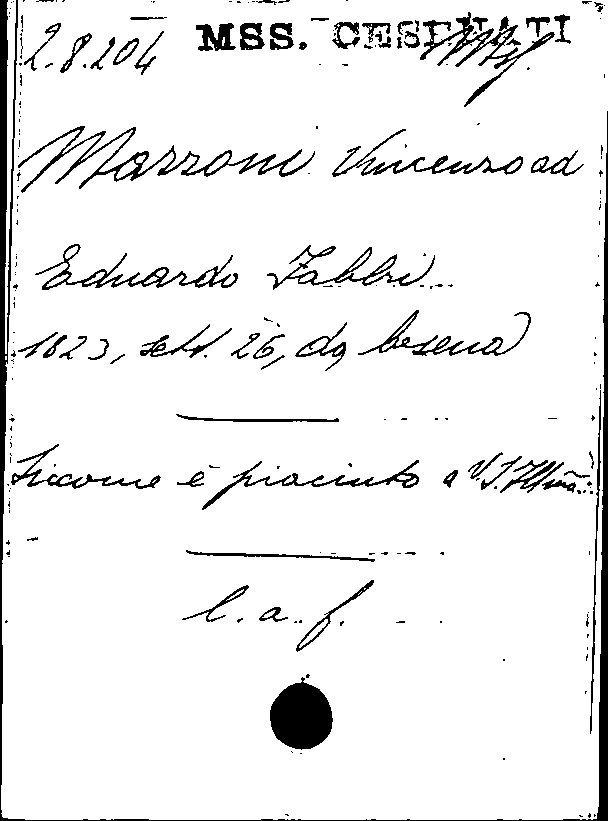 2.8.204 MSS. CESENATI
Mazzoni Vincenzo ad
Eduardo Fabbri
1823, sett. 26, da Cesena
Siccome è piaciuto a V. S. Ill̃ma
c. a. f.